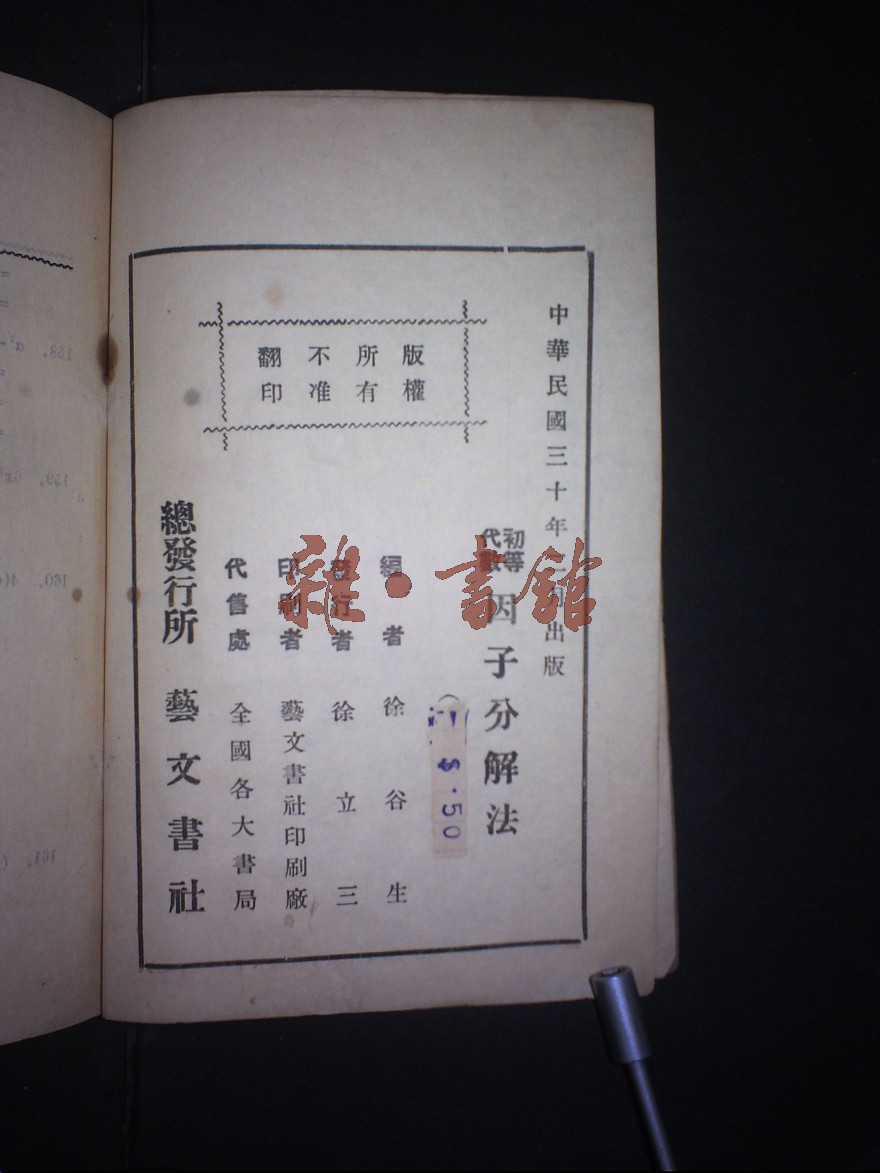 中華民國三十年二月出版
版權
所有
不准
翻印
初等
代數
因子分解法
$.50
編者 徐谷生
發行者 徐立三
印刷者 藝文書社印刷廠
代售處 全國各大書局
總發行所 藝文書社
雜·書館
158,
159,
160,
161,